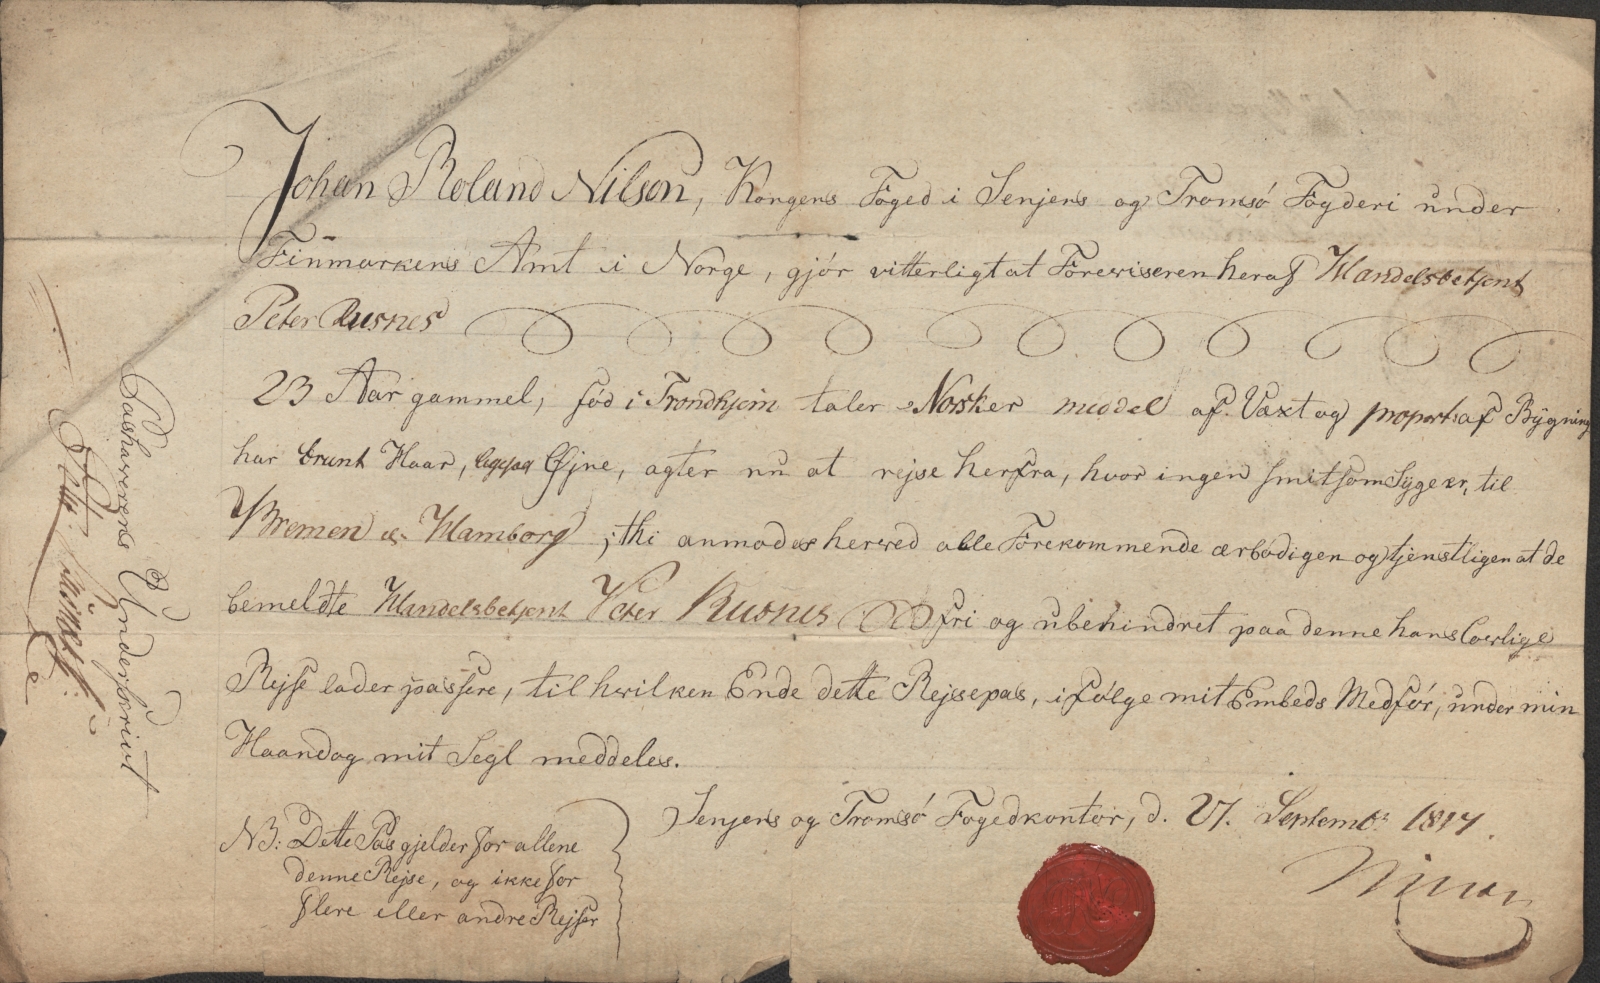 Johan Roland Nilson, Kongens Foged i Senjens og Tromsö Fogderi under
Finmarkens Amt i Norge, gjör vitterligt at Forewiseren heraf Handelsbetjent
Peter Rusnes
23 Aar gammel, föd i Trondhjem taler Norsk er middel af Væxt og proports af Bÿgning
har brunt Haar, Øjne, agter nu at rejse herfra, hvor ingen smitsom Sÿge er, til
Bremen & Hamborg; thi anmodes herwed alle Forekommende ærbödigen og tjenstligen at de
bemeldte Handelsbetjent Peter Rusnes fri og ubehindret paa denne hans lovlige
Rejse lader passere, til hwilken Ende dette Rejsepas, i fölge mit Embeds Medför, under min
Haand og mit Segl meddeles.
Senjens og Tromsö Fogedkontor, d. 27. Septembr 1817.
NB: Dette Pas gjelder for allene
denne Rejse, og ikke for
flere eller andre Rejser
Pashaverens Underskrivt